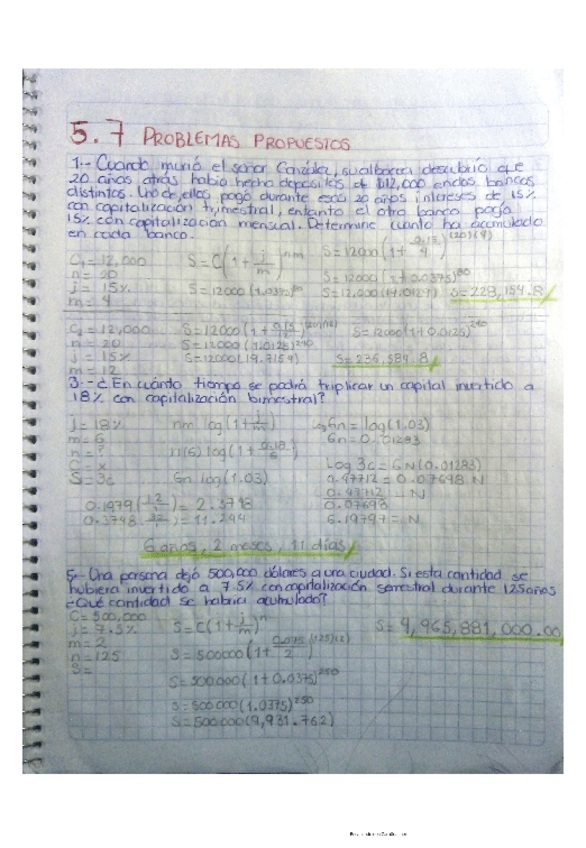 5.7 PROBLEMAS PROPUESTOS
1.- Cuando murió el señor González, su albacea descubrió que
20 años atrás había hecho depósitos de $12,000 en dos bancos
distintos. Uno de ellos pagó durante esos 20 años intereses de 15%
con capitalización trimestral, entanto el otro banco pagó
15% con capitalización mensual. Determine cuanto ha acumulado
en cada banco.
C1 = 12,000
n = 20
j = 15%
m = 4
S = C(1 + j/m)^nm
S = 12000 (1.0375)^80
S = 12000 (1 + 0.15/4)^(20)(4)
S = 12000 (1 + 0.0375)^80
S = 12,000 (19.0129)
S = 228,154.8
C2 = 12,000
n = 20
j = 15%
m = 12
S = 12000 (1 + 0.15/12)^(20)(12)
S = 12000 (1.0125)^240
S = 12000 (19.7154)
S = 12000 (1 + 0.0125)^240
S = 236,584.8
3.- ¿En cuánto tiempo se podrá triplicar un capital invertido a
18% con capitalización bimestral?
j = 18%
m = 6
n = ?
C = x
S = 3c
nm log (1 + j/m)
n(6) log (1 + 0.18/6)
6n log (1.03)
Log 6n = log (1.03)
6n = 0.01283
Log 3c = 6N (0.01283)
0.47712 = 0.07698 N
0.47712/0.07698 = N
6.19797 = N
0.1979 (12/1) = 2.3748
0.3748 (30/1) = 11.244
6 años, 2 meses, 11 días
5.- Una persona dejó 500,000 dólares a una ciudad. Si esta cantidad se
hubiera invertido a 7.5% con capitalización semestral durante 125 años
¿Qué cantidad se habría acumulado?
C = 500,000
j = 7.5%
m = 2
n = 125
S =
S = C(1 + j/m)^n
S = 500000 (1 + 0.075/2)^(125)(2)
S = 500000 (1 + 0.0375)^250
S = 500000 (1.0375)^250
S = 500000 (9,931.762)
S = 4,965,881,000.00